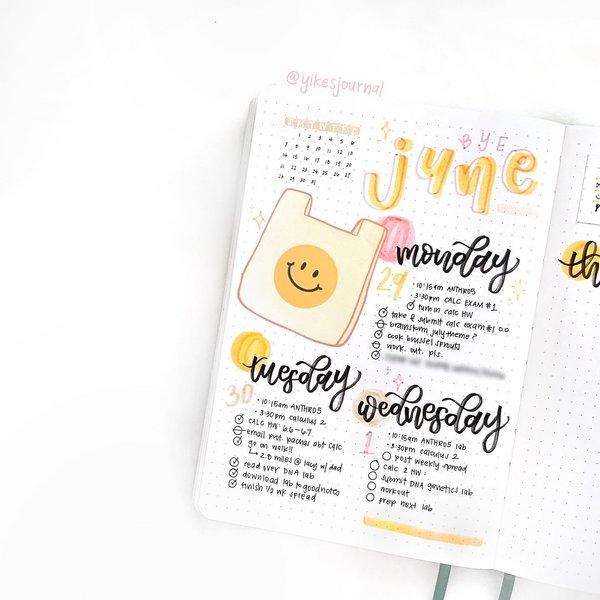 @yikesjournal
1 2 3 4 5 6
7 8 9 10 11 12 13
14 15 16 17 18 19 20
21 22 23 24 25 26 27
28 29 30 31
BYE
june
monday
29
• 10:15am ANTHRO5
• 3:30pm CALC EXAM #1
turn in calc HW
take & submit calc exam #1 0.0
brainstorm july theme ?
cook brussel sprouts
work. out. pls.
tuesday
30
• 10:15am ANTHRO5
• 3:30pm calculus 2
CALC HW 6.6-6.7
email prof. pachas abt calc
go on walk!!
↳ 2.8 miles @ lacy w/ dad
read over DNA lab
download lab to goodnotes
finish 1/2 wk spread
wednesday
1
• 10:15am ANTHRO5 lab
• 3:30pm calculus 2
post weekly spread
calc 2 HW :
submit DNA genetics lab
workout
prep next lab
th